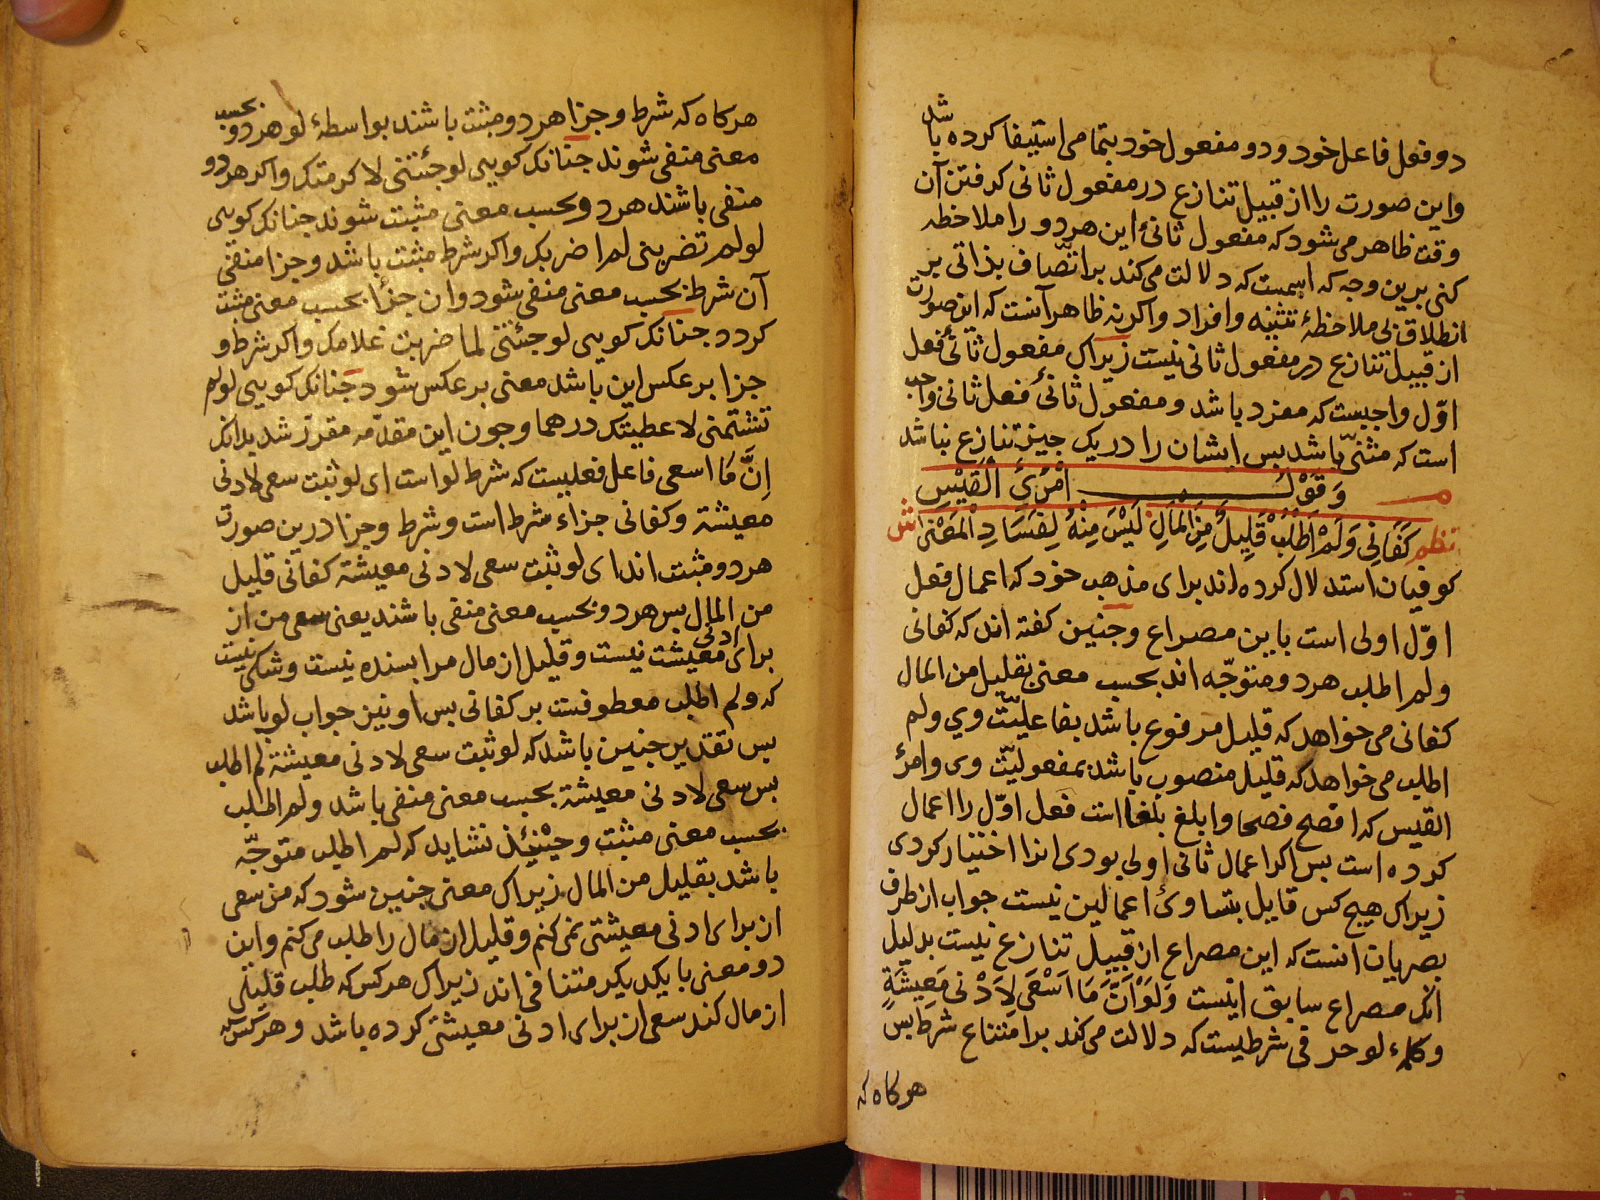 دو فعل فاعل خود و دو مفعول خود بتمامی استیفا کرده باشد
و این صورت را از قبیل تنازع در مفعول ثانی کرفتن آن
وقت ظاهر می شود که مفعول ثانیٔ این هر دو را ملاحظه
کنی برین وجه که اسمیست که دلالت می کند بر اتّصاف بذاتی بر
انطلاق بی ملاحظهٔ تثنیه و افراد و اکرنه ظاهر آنست که این صورت
از قبیل تنازع در مفعول ثانی نیست زیراک مفعول ثانیٔ فعل
اوّل واجبست که مفرد باشد و مفعول ثانیٔ فعل ثانی واجب
است که مثنّی باشد بس ایشان را در یک جیز تنازع نباشد
م وَقَوْلُ امْرُئِ الْقَیْسِ
نظم کَفَانِی وَلَمْ اَطْلُبْ قَلِیلٌ مِنَ الْمَالِ لَیْسَ مِنْهُ لِفَسَادِ الْمَعْنَی ش
کوفیان استدلال کرده اند برای مذهب خود که اعمال فعل
اوّل اولی است باین مصراع و جنین کفته اند که کفانی
و لم اطلب هر دو متوجّه اند بحسب معنی بقلیل من المال
کفانی می خواهد که قلیل مرفوع باشد بفاعلیّت وی و لم
اطلب می خواهد که قلیل منصوب باشد بمفعولیّت وی و امرٔ
القیس که افصح فصحا و ابلغ بلغا است فعل اوّل را اعمال
کرده است بس اکر اعمال ثانی اولی بودی انرا اختیار کردی
زیراک هیج کس قایل بتساویٔ اعمالین نیست جواب از طرف
بصریان انست که این مصراع از قبیل تنازع نیست بدلیل
انک مصراع سابق اینست وَلَوْ اَنَّ مَا اَسْعَی لِاَدْنی مَعِیشَةٍ
و کلمهٔ لو حرفی شرطیست که دلالت می کند بر امتناع شرط بس
هر کاه که
هر کاه که شرط و جزا هر دو مثبت باشند بواسطهٔ لو هر دو بحسب
معنی منفی شوند جنانک کویی لو جئتنی لاکرمتک و اکر هر دو
منفی باشند هر دو بحسب معنی مثبت شوند جنانک کویی
لو لم تضربنی لم اضربک و اکر شرط مثبت باشد و جزا منفی
آن شرط بحسب معنی منفی شود و ان جزأ بحسب معنی مثبت
کردد جنانک کویی لو جئتنی لما ضربت غلامک و اکر شرط و
جزا بر عکس این باشد معنی بر عکس شود جنانک کویی لو لم
تشتمنی لاعطیتک درهما و جون این مقدّمه مقرّر شد بدانک
اِنَّ مَا اسعی فاعل فعلیست که شرط لو است ای لو ثبت سعی لادنی
معیشة و کفانی جزاء شرط است و شرط و جزا درین صورت
هر دو مثبت اند ای لو ثبت سعی لادنی معیشة کفانی قلیل
من المال بس هر دو بحسب معنی منفی باشند یعنی سعی من از
برای ادنی معیشت نیست و قلیل از مال مرا بسنده نیست و شکی نیست
که و لم اطلب معطوفست بر کفانی بس او نیز جواب لو باشد
بس تقدیر جنین باشد که لو ثبت سعی لادنی معیشة لم اطلب
بس سعی لادنی معیشة بحسب معنی منفی باشد و لم اطلب
بحسب معنی مثبت و حِینَئِذ نشاید که لم اطلب متوجّه
باشد بقلیل من المال زیراک معنی جنین شود که من سعی
از برای ادنی معیشتی نمی کنم و قلیل از مال را طلب می کنم و این
دو معنی با یکدیکر متنافی اند زیراک هر کس که طلب قلیلی
از مال کند سعی از برای ادنی معیشتی کرده باشد و هر کس که